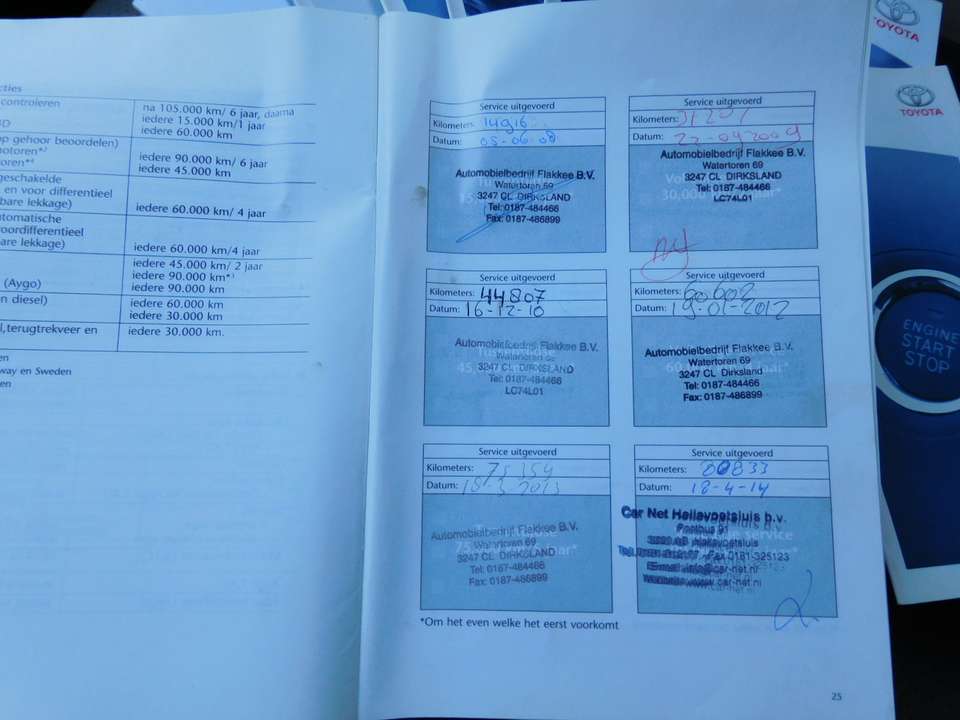 cties
controleren
na 105.000 km/ 6 jaar, daarna
iedere 15.000 km/1 jaar
iedere 60.000 km
op gehoor beoordelen)
motoren*²
toren*⁴
iedere 90.000 km/ 6 jaar
iedere 45.000 km
geschakelde
en voor differentieel
bare lekkage)
iedere 60.000 km/ 4 jaar
utomatische
voordifferentieel
are lekkage)
iedere 60.000 km/4 jaar
iedere 45.000 km/ 2 jaar
iedere 90.000 km*³
(Aygo)
iedere 90.000 km
n diesel)
iedere 60.000 km
iedere 30.000 km
l,terugtrekveer en
iedere 30.000 km.
en
way en Sweden
en
Service uitgevoerd
Kilometers: 14916
Datum: 05-06-08
Automobielbedrijf Flakkee B.V.
Watertoren 69
3247 CL DIRKSLAND
Tel: 0187-484466
Fax: 0187-486899
Service uitgevoerd
Kilometers: 31201
Datum: 22-04-2009
Automobielbedrijf Flakkee B.V.
Watertoren 69
3247 CL DIRKSLAND
Tel: 0187-484466
LC74L01
Service uitgevoerd
Kilometers: 44807
Datum: 16-12-10
Automobielbedrijf Flakkee B.V.
Watertoren 69
3247 CL DIRKSLAND
Tel: 0187-484466
LC74L01
Service uitgevoerd
Kilometers: 60602
Datum: 19-01-2012
Automobielbedrijf Flakkee B.V.
Watertoren 69
3247 CL Dirksland
Tel: 0187-484466
Fax: 0187-486899
Service uitgevoerd
Kilometers: 75154
Datum: 18-3-2013
Automobielbedrijf Flakkee B.V.
Watertoren 69
3247 CL DIRKSLAND
Tel: 0187-484466
Fax: 0187-486899
Service uitgevoerd
Kilometers: 80833
Datum: 18-4-14
Car Net Hellevoetsluis b.v.
Postbus 91
Hellevoetsluis
Fax 0181-325123
www.car-net.nl
*Om het even welke het eerst voorkomt
25
TOYOTA
TOYOTA
ENGINE
START
STOP